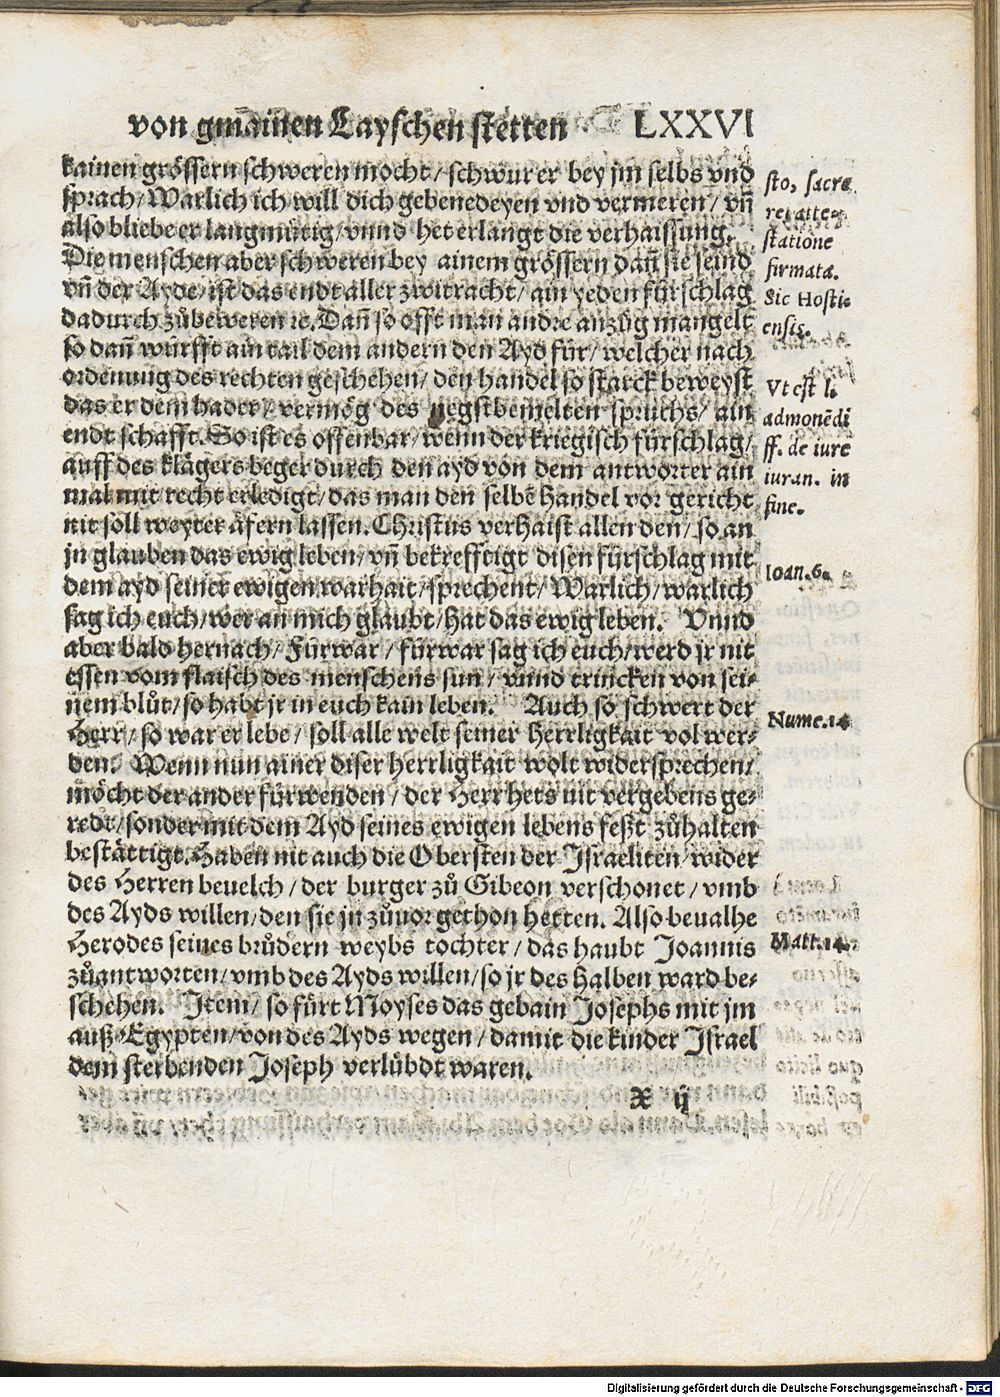 von gmainen Layschen stetten LXXVI
kainen grössern schweren mocht / schwur er bey jm selbs vnd
sprach / Warlich ich will dich gebenedeyen vnd vermeren / vñ
also bliebe er langmütig / vnnd het erlangt die verhaissung.
Die menschen aber schweren bey ainem grössern dañ sie seind
vñ der Ayde / ist das endt aller zwitracht / ain yeden fürschlag
dadurch zůbeweren ꝛc. Dañ so offt man andre anzüg mangelt
so dañ würfft ain tail dem andern den Ayd für / welcher nach
ordenung des rechten geschehen / den handel so starck beweyst
das er dem hader / vermög des negstbemelten spruchs / ain
endt schafft. So ist es offenbar / wenn der kriegisch fürschlag /
auff des klägers beger durch den ayd von dem antworter ain
mal mit recht erledigt / das man den selbē handel vor gericht
nit soll weyter äfern lassen. Christus verhaist allen den / so an
jn glauben das ewig leben / vñ bekrefftigt disen fürschlag mit
dem ayd seiner ewigen warhait / sprechent / Warlich / warlich
sag ich euch / wer an mich glaubt / hat das ewig leben. Vnnd
aber bald hernach / Fürwar / fürwar sag ich euch / werd jr nit
essen vom flaisch des menschens sun / vnnd trincken von sei⸗
nem blůt / so habt jr in euch kain leben. Auch so schwert der
Herr / so war er lebe / soll alle welt seiner herrligkait vol wer⸗
den. Wenn nun ainer diser herrligkait wolt widersprechen /
möcht der ander fürwenden / der Herr hets nit vergebens ge⸗
redt / sonder mit dem Ayd seines ewigen lebens feßt zůhalten
bestättigt. Haben nit auch die Obersten der Israeliten / wider
des Herren beuelch / der burger zů Gibeon verschonet / vmb
des Ayds willen / den sie jn zůuor gethon hetten. Also beualhe
Herodes seines brůdern weybs tochter / das haubt Joannis
zůantworten / vmb des Ayds willen / so jr des halben ward be⸗
schehen. Item / so fůrt Moyses das gebain Josephs mit jm
auß Egypten / von des Ayds wegen / damit die kinder Israel
dem sterbenden Joseph verlübdt waren.
X ij
sto, sacre
statione
firmata.
Sic Hosti⸗
ensis.
Vt est l.
admonēdi
ff. de iure
iuran. in
fine.
Ioan. 6.
Nume. 14
Matt. 14.
Digitalisierung gefördert durch die Deutsche Forschungsgemeinschaft - DFG